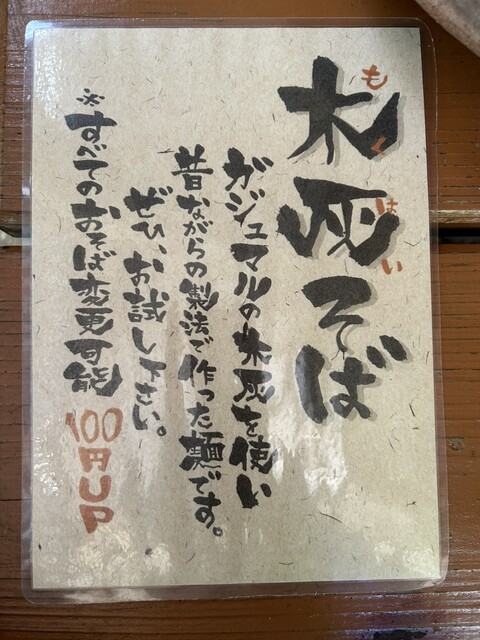 木灰そば
もくはい
ガジュマルの木灰を使い
昔ながらの製法で作った麺です。
ぜひ、お試し下さい。
※すべてのおそば変更可能 100円UP